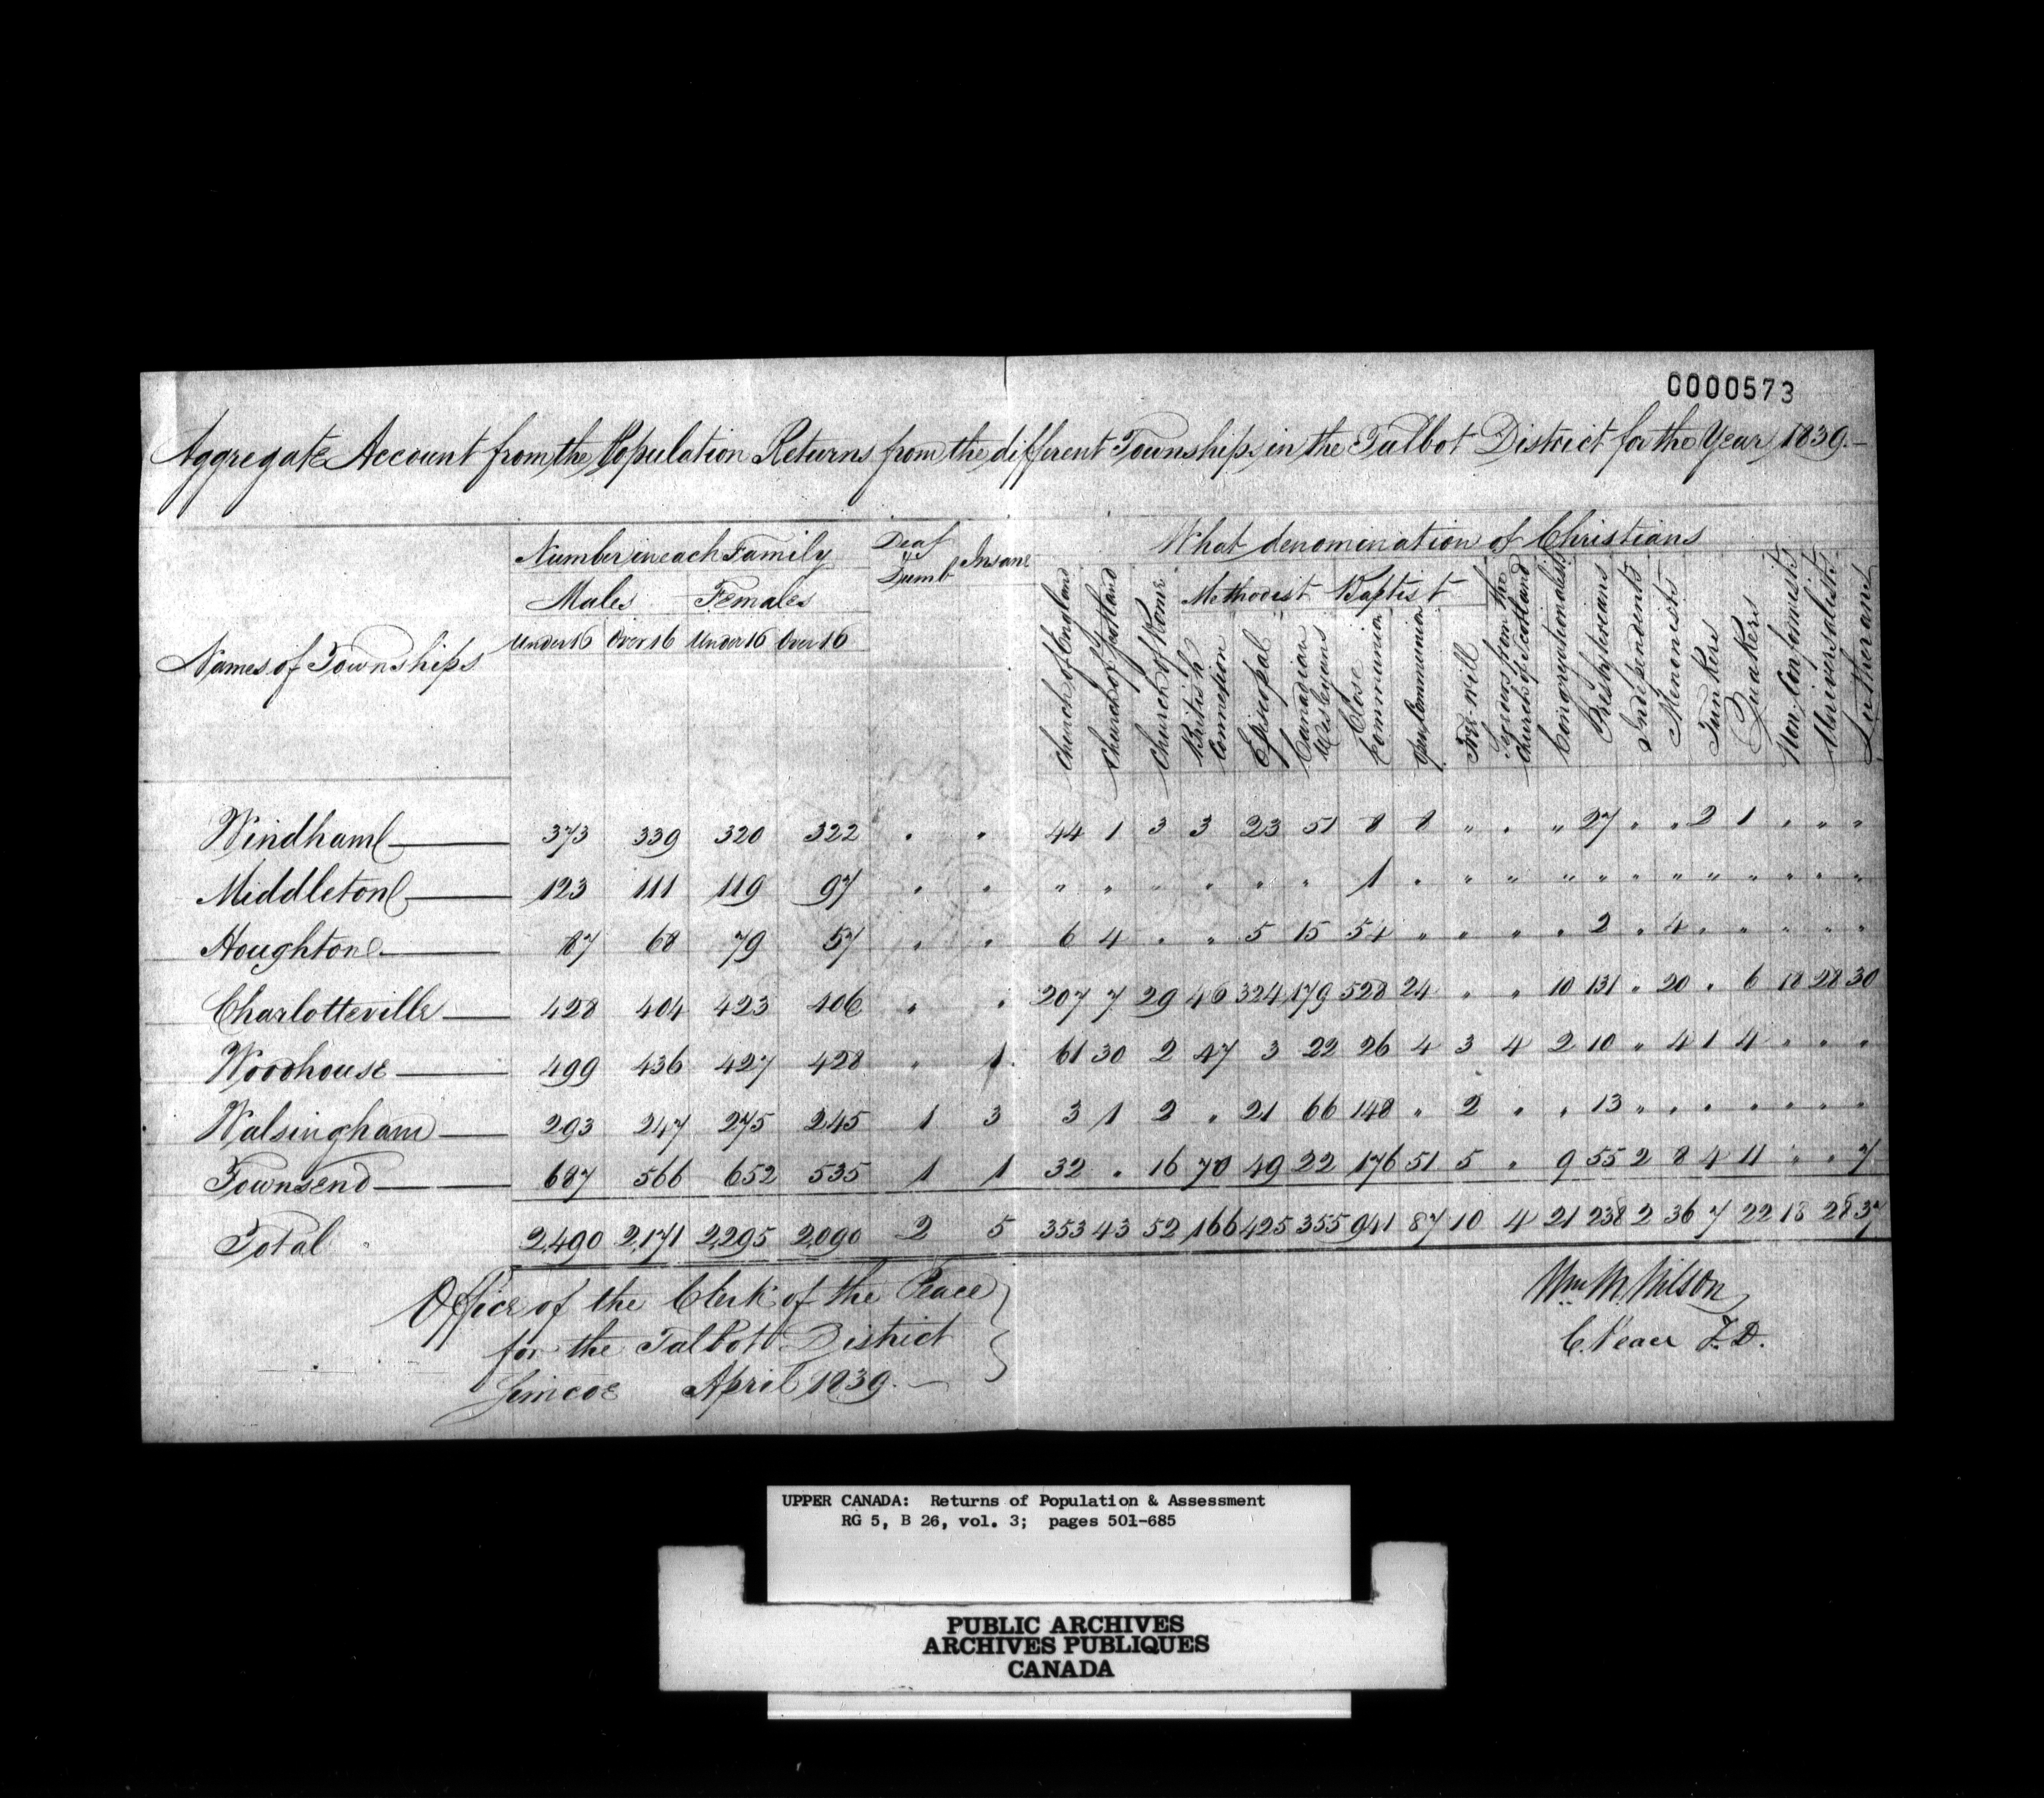 0000573
Aggregate Account from the Population Returns from the different Townships in the Talbot District for the Year 1839.—
Names of Townships
Number in each Family
Males Females
Under 16 Over 16 Under 16 Over 16
Deaf & Dumb
Insane
What denomination of Christians
Church of England
Church of Scotland
Church of Rome
Methodist
British Connexion
Episopal
Canadian Wesleyans
Baptist
Close Communion
Open Communion
Free-will
Seceders from the Church of Scotland
Congregationalists
Presbyterians
Independents
Menonists
Tunkers
Quakers
Non-Conformists
Universalists
Lutherans
Windham 373 339 320 322 . . 44 1 3 3 23 51 8 8 " . " 27 " " 2 1 . " "
Middleton 123 111 119 97 . . " . " . " " 1 . " " " " " " " " " . "
Houghton 87 68 79 57 . . 6 4 . " 5 15 54 " " " . 2 . 4 . " " " "
Charlotteville 428 404 423 406 " . 207 7 29 46 324 179 528 24 " " 10 131 " 20 . 6 18 28 30
Woodhouse 499 436 427 428 " 1 61 30 2 47 3 22 26 4 3 4 2 10 " 4 1 4 " " "
Walsingham 293 247 275 245 1 3 3 1 2 " 21 66 148 " 2 " . 13 " . . . . . .
Townsend 687 566 652 535 1 1 32 . 16 70 49 22 176 51 5 " 9 55 2 8 4 11 " " 7
Total 2,490 2,171 2,295 2,090 2 5 353 43 52 166 425 355 941 87 10 4 21 238 2 36 7 22 18 28 37
Office of the Clerk of the Peace
for the Talbot District
Simcoe April 1839.—
Wm M. Wilson
C. Peace T.D.
UPPER CANADA: Returns of Population & Assessment
RG 5, B 26, vol. 3; pages 501-685
PUBLIC ARCHIVES
ARCHIVES PUBLIQUES
CANADA